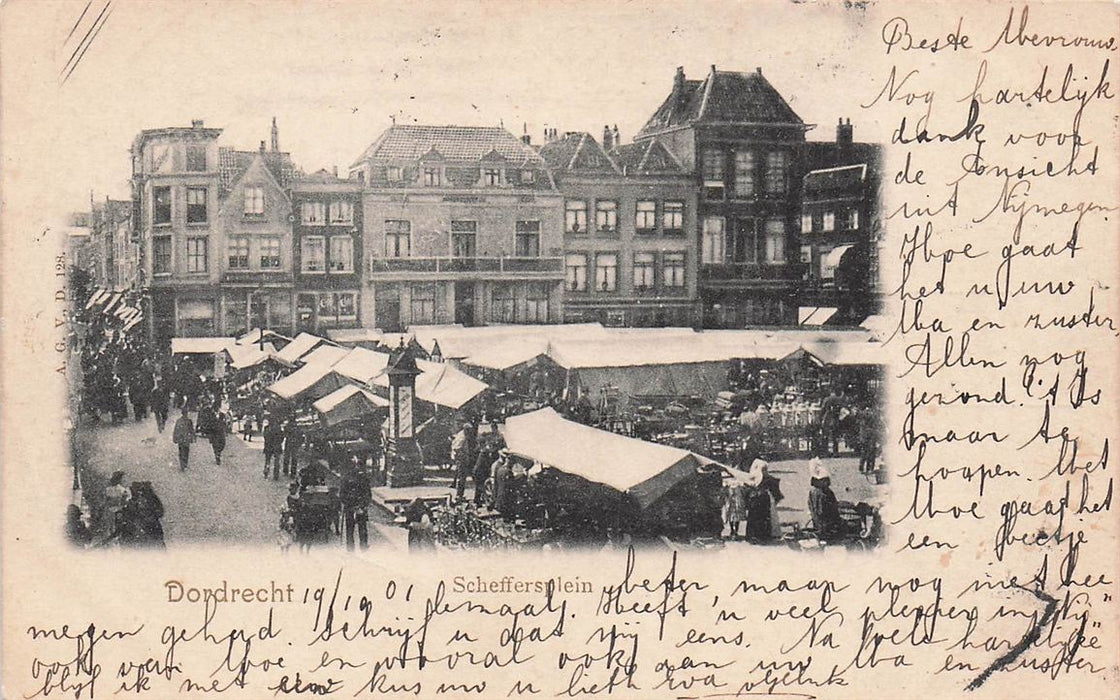 Beste Mevrouw
Nog hartelijk
dank voor
de Ansicht
uit Nijmegen
Hoe gaat
het u uw
Ma en zuster
Allen nog
gezond. 't Is
maar te
hoopen. Met
Moe gaat het
een beetje
A. G. V. D. 128.
Dordrecht 19/10 01 Scheffersplein
beter, maar nog niet hee
lemaal. Heeft u veel plezier in "Nij"
megen gehad. Schrijf u dat mij eens. Na vele hartelijke
ook van Moe en vooral ook aan uw Ma en zuster
blijf ik met een kus uw u liefh